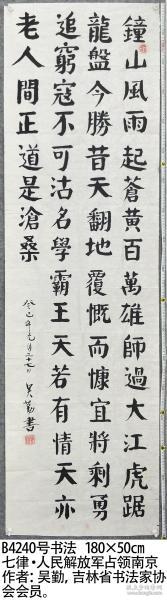 鐘山風雨起蒼黄百萬雄師過大江虎踞
龍盤今勝昔天翻地覆慨而慷宜將
追窮寇不可沽名學霸王天若有情天亦
老人間正道是滄桑
癸巳年元月二十七日 吴勤書
B4240号书法 180×50cm
七律·人民解放军占领南京
作者: 吴勤, 吉林省书法家协
会会员。